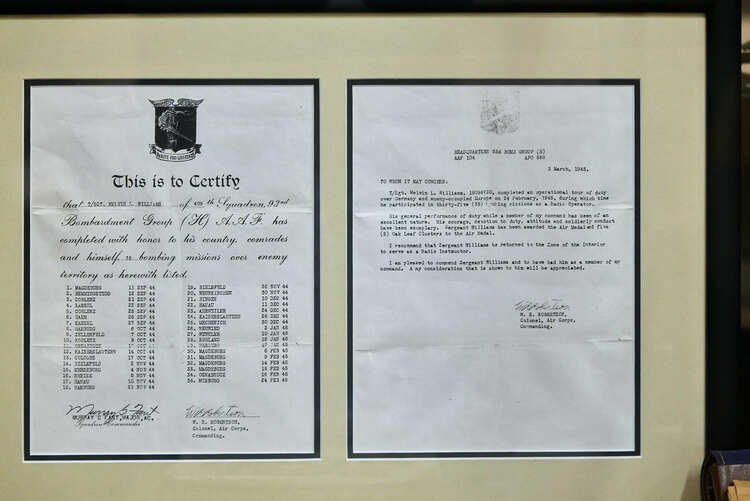 This is to Certify
that T/SGT. MELVIN L. WILLIAMS of 409th Squadron, 93rd
Bombardment Group (H) A.A.F. has
completed with honor to his country, comrades
and himself 35 bombing missions over enemy
territory as herewith listed.
1. MAGDEBURG SEP 44
2. HEMMINGSTEDT SEP 44
3. COBLENZ 21 SEP 44
4. KASSEL 22 SEP 44
5. COBLENZ SEP 44
6. HAMM 26 SEP 44
7. KASSEL SEP 44
8. HARBURG 6 OCT 44
9. 7 OCT 44
10. KOBLENZ 9 OCT 44
11. OSNABRUCK OCT 44
12. KAISERSLAUTERN 14 OCT 44
13. COLOGNE 17 OCT 44
14. BIELEFELD NOV 44
15. MERSEBURG NOV 44
16. RHEINE NOV 44
17. HANAU 10 NOV 44
18. HARBURG 21 NOV 44
19. BIELEFELD 26 NOV 44
20. NEUNKIRCHEN 30 NOV 44
21. BINGEN 10 DEC 44
22. HANAU 11 DEC 44
23. AHRWEILER DEC 44
24. KAISERSLAUTERN DEC 44
25. MECHERNICH 30 DEC 44
26. NEUWIED 2 JAN 45
27. JAN 45
28. RUHLAND 16 JAN 45
HARBURG 17 JAN 45
30. MAGDEBURG 6 FEB 45
31. MAGDEBURG 9 FEB 45
MAGDEBURG 14 FEB 45
MAGDEBURG 15 FEB 45
OSNABRUCK FEB 45
MISBURG 24 FEB 45
MURRAY G. FANT, MAJOR, AC.
Squadron Commander
W. R. ROBERTSON,
Colonel, Air Corps,
Commanding.
HEADQUARTERS 93d BOMB GROUP (H)
AAF 104 APO 558
2 March, 1945.
TO WHOM IT MAY CONCERN:
T/Sgt. Melvin L. Williams, completed an operational tour of duty
over Germany and enemy-occupied Europe on 24 February, 1945, during which time
he participated in thirty-five (35) bombing missions as a Radio Operator.
His general performance of duty while a member of my command has been of an
excellent nature. His courage, devotion to duty, attitude and soldierly conduct
have been exemplary. Sergeant Williams has been awarded the Air Medal and five
(5) Oak Leaf Clusters to the Air Medal.
I recommend that Sergeant Williams be returned to the Zone of the Interior
to serve as a Radio Instructor.
I am pleased to commend Sergeant Williams and to have had him as a member of my
command. Any consideration that is shown to him will be appreciated.
W. R. ROBERTSON,
Colonel, Air Corps,
Commanding.